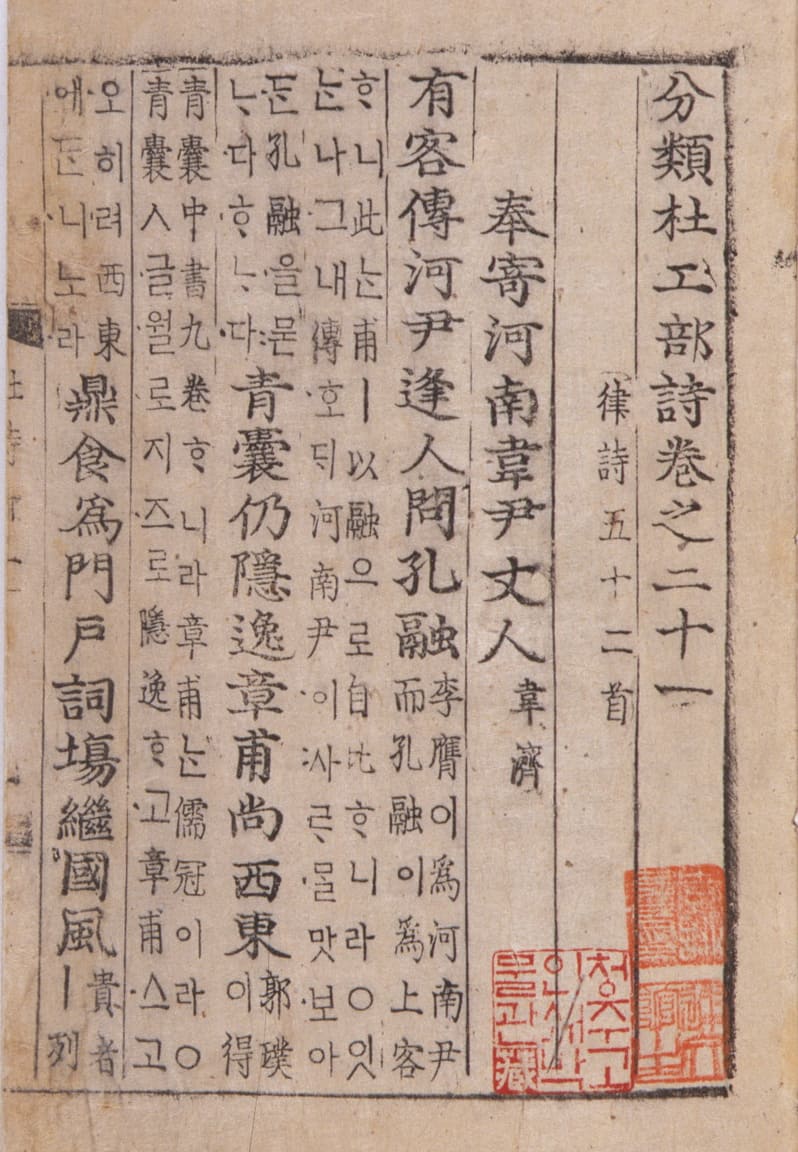 分類杜工部詩卷之二十一
律詩五十二首
奉寄河南韋尹丈人 韋濟
有客傳河尹逢人問孔融
李膺이爲河南尹
而孔融이爲上客
ᄒᆞ니此ᄂᆞᆫ甫ㅣ以融으로自比ᄒᆞ니라○잇
ᄂᆞᆫ나그내傳호ᄃᆡ河南尹이사ᄅᆞᄆᆞᆯ맛보아
ᄃᆞᆫ孔融을묻
ᄂᆞ다ᄒᆞᄂᆞ다
青囊仍隱逸章甫尚西東
郭璞
이得
青囊中書九卷ᄒᆞ니라章甫ᄂᆞᆫ儒冠이라○
青囊ㅅ글월로지즈로隱逸ᄒᆞ고章甫스고
오히려西東
에ᄃᆞᆮ니노라
鼎食爲門戶詞塲繼國風
貴者
ㅣ列
청주고
인쇄박
물관藏